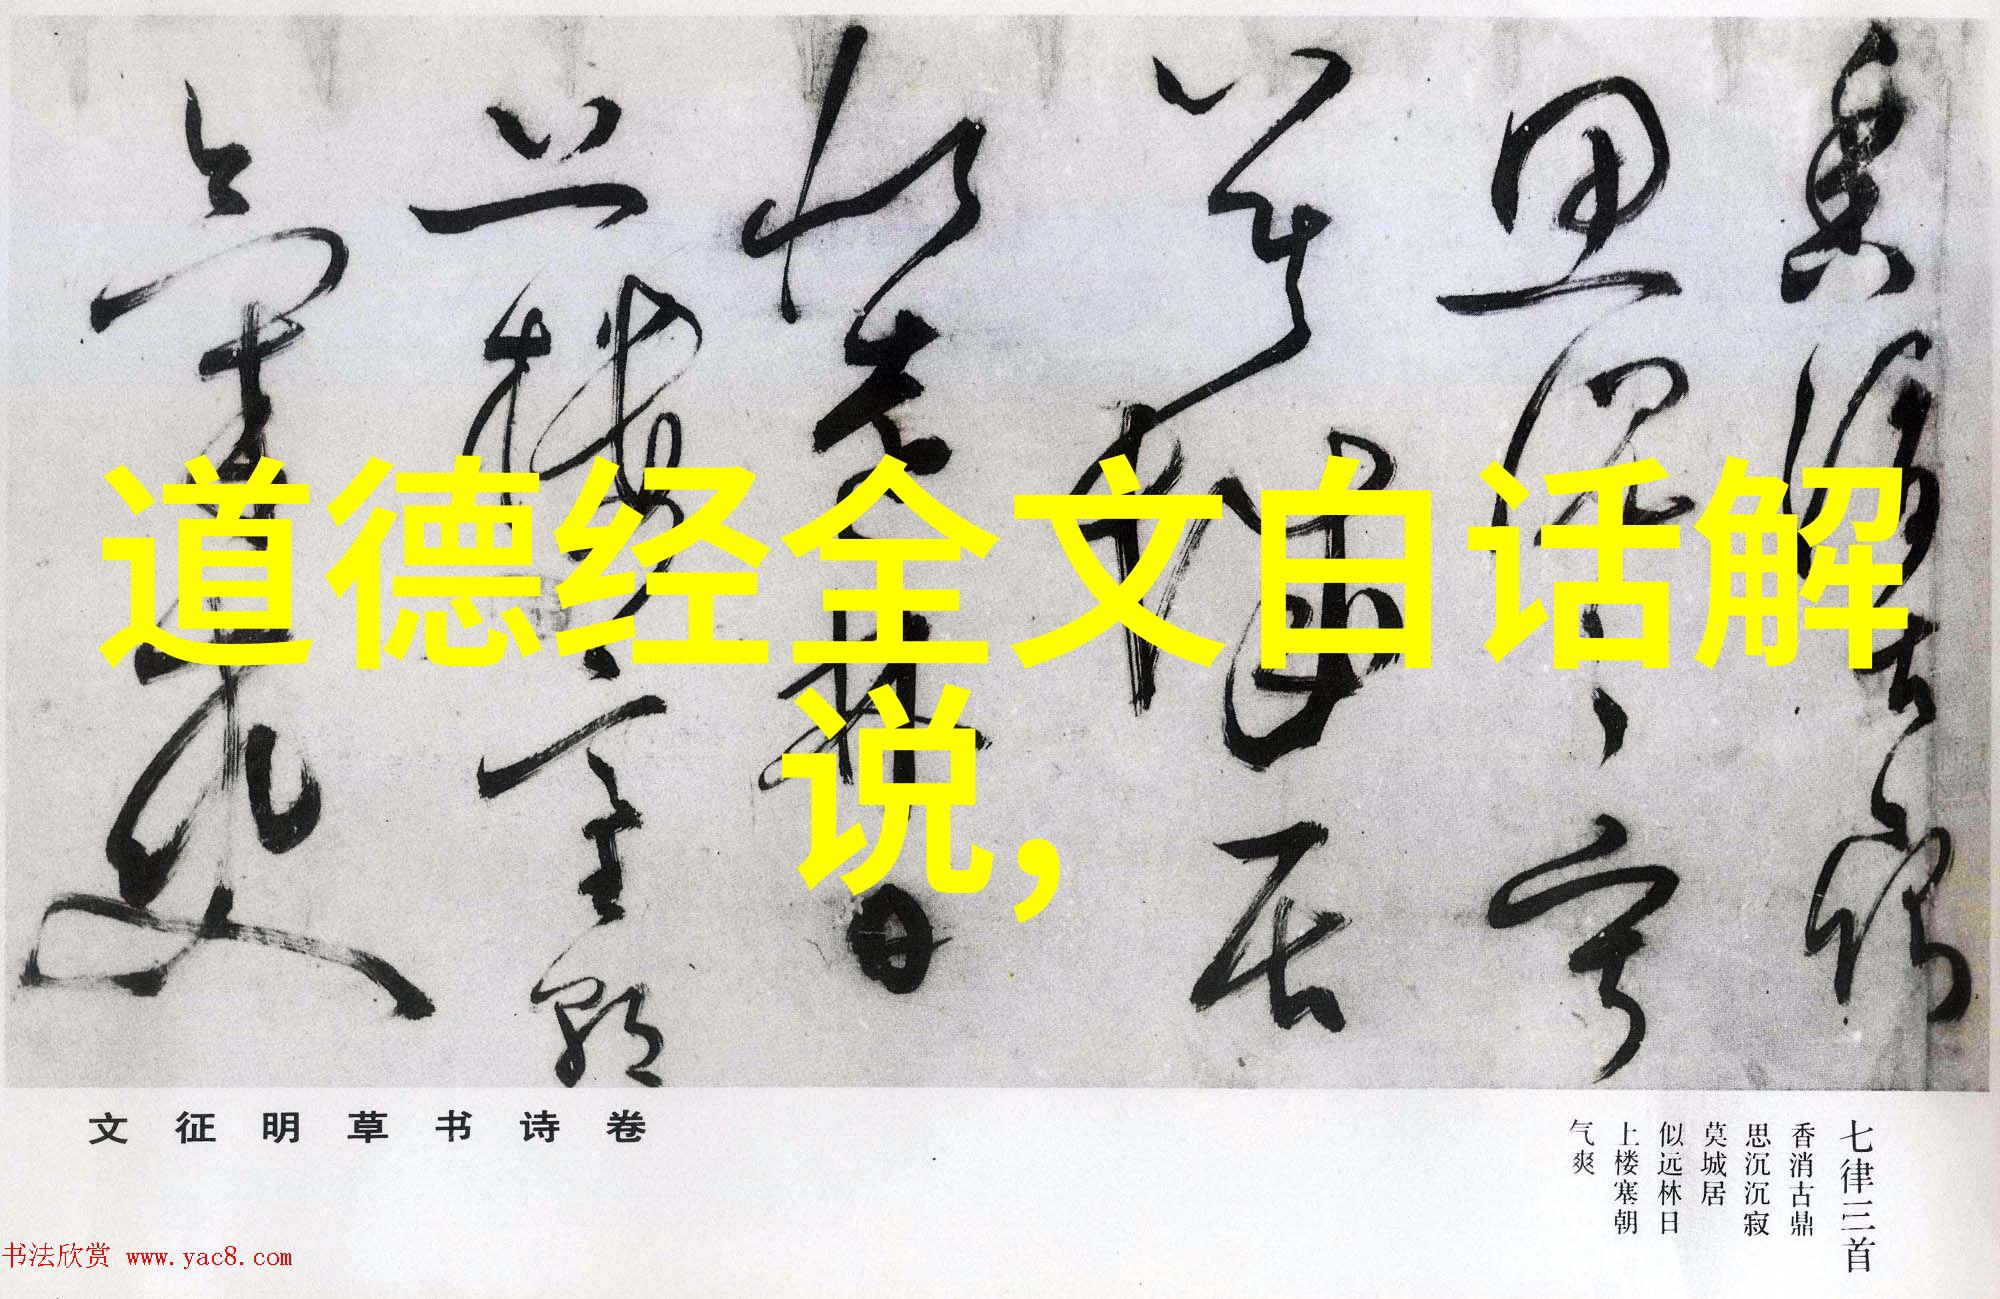 道德经全文白话解
说,
文征明草书诗卷
七律三首
香消古鼎
思沉沉寂
莫城居
似远林日
上楼塞朝
气爽
书法欣赏 www.yac8.com